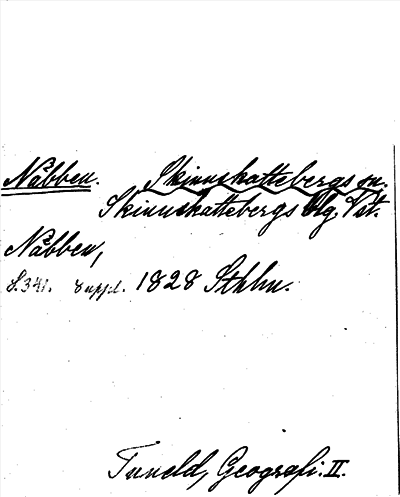 Nåbben. Skinnskattebergs sn.
Skinnskattebergs blg, Vstm.
Nåbben,
S. 341. Suppl. 1828 Sthlm.
Tuneld, Geografi. II.